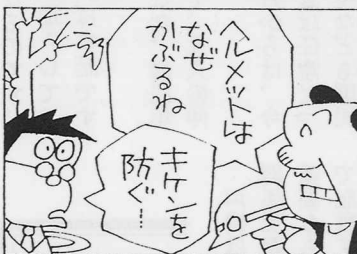 ヘルメットは
なぜ
かぶるね
キケンを
防ぐ…